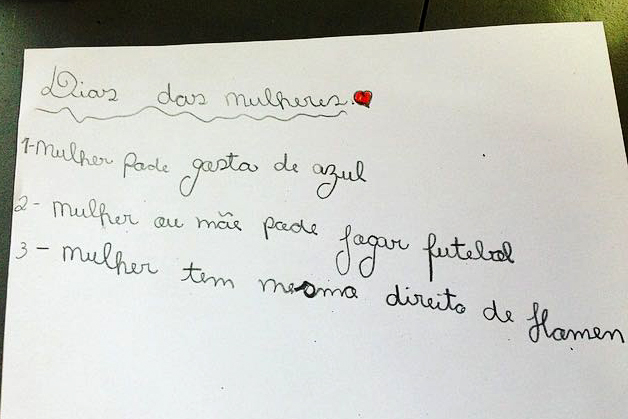 Dias das mulheres
1-Mulher pode gosta de azul
2- mulher ou mãe pode jogar futebol
3- mulher tem mesmo direito de Homen